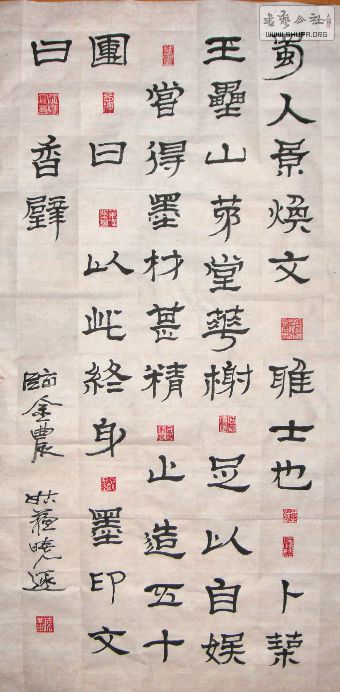 蜀人景煥文雅士也卜築
王壘山茅堂華榭足以自娛
嘗得墨材甚精止造五十
團曰以此終身墨印文
曰香璧
臨金農 姑蘇曉
书艺公社
WWW.SHUFA.ORG